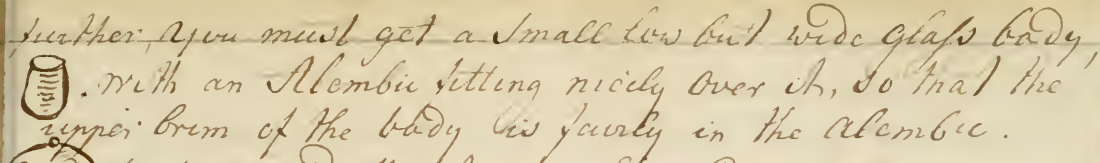 further, you must get a Small low but wide Glaſs body,
. With an Alembic fitting nicely Over it, So that the
upper brim of the body is fairly in the alembic.